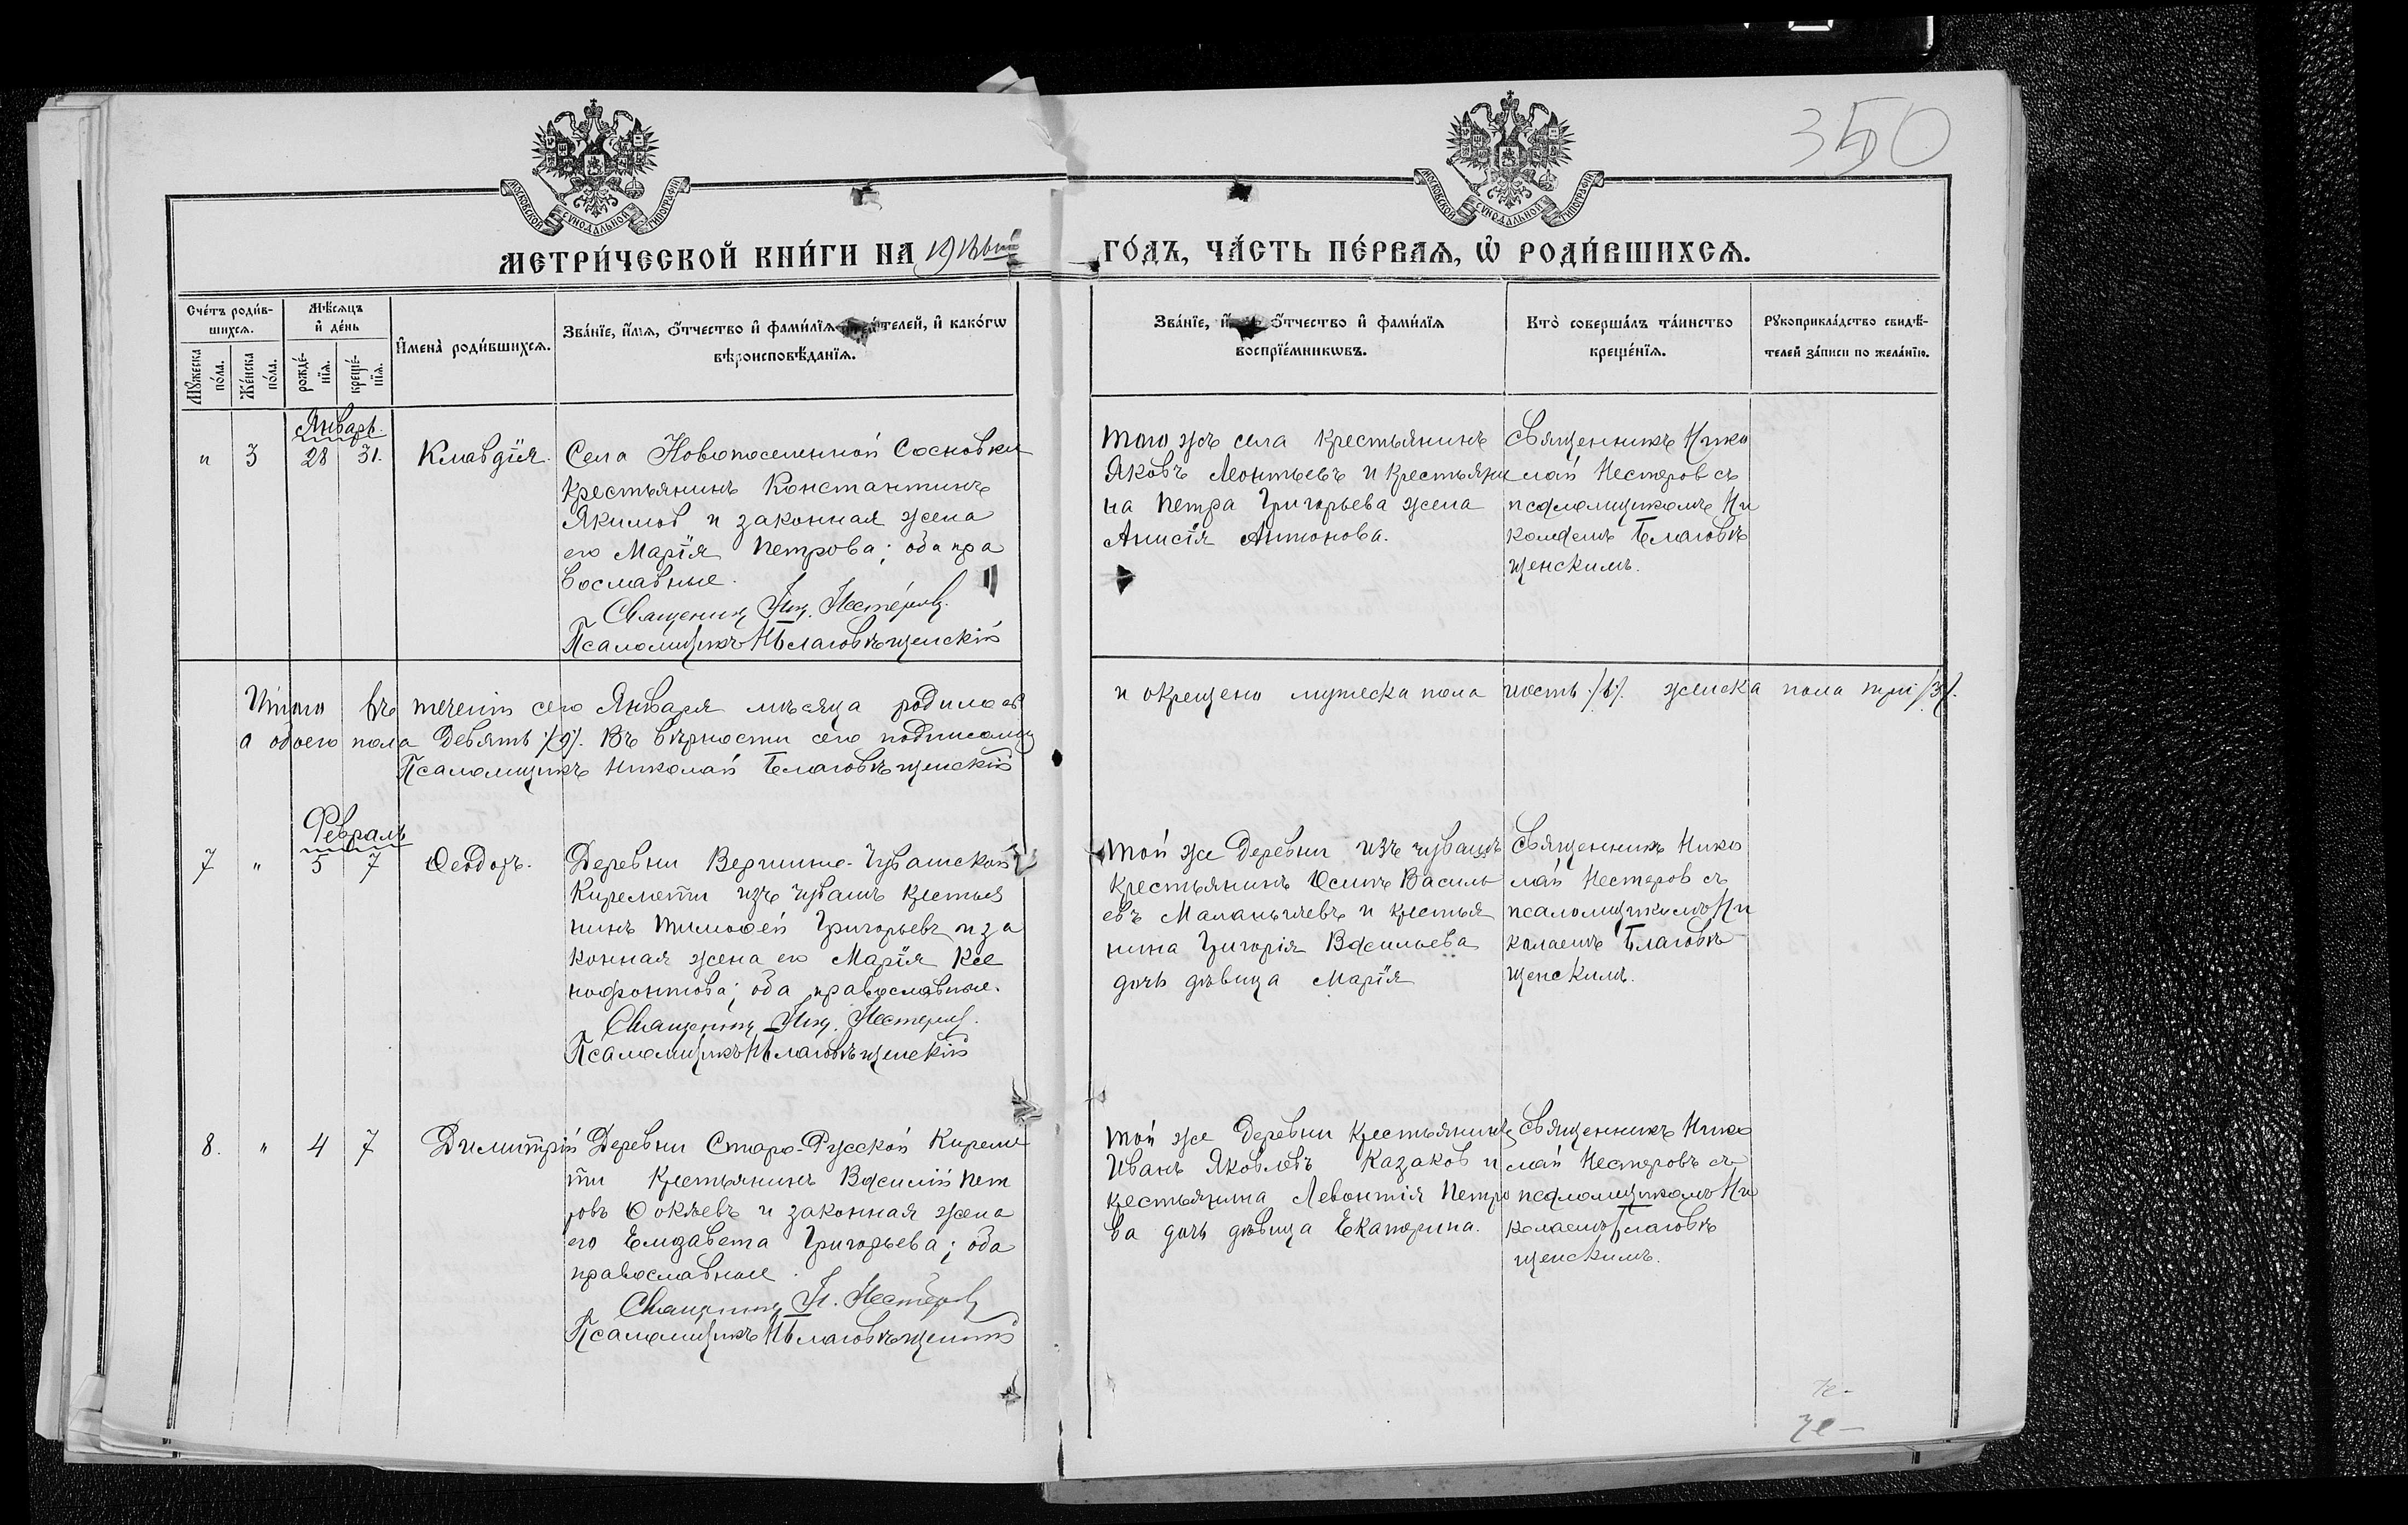 350
МОСКОВСКОЙ СѴНОДАЛЬНОЙ ТИПОГРАФІИ
МОСКОВСКОЙ СѴНОДАЛЬНОЙ ТИПОГРАФІИ
МЕТРИ́ЧЕСКОЙ КНИ́ГИ НА ГО́ДЪ, ЧА́СТЬ ПЕ́РВАѦ, Ѡ҆ РОДИ́ВШИХСѦ.
Сче́тъ роди́в-
шихсѧ.
Мѣ́сѧцъ
и҆ де́нь
Мꙋ́жеска
по́ла.
Же́нска
по́ла.
рожде́-
нїѧ.
креще́-
нїѧ.
И҆мена̀ роди́вшихсѧ.
Зва́нїе, и҆́мѧ, ѻ҆́тчество и҆ фами́лїѧ роди́телей, и҆ како́гѡ
вѣроисповѣ́данїѧ.
Зва́нїе, ѻ҆́тчество и҆ фами́лїѧ
воспрїе́мникѡвъ.
Кто̀ соверша́лъ та́инство
креще́нїѧ.
Рꙋкоприкла́дство свидѣ́-
телей за́писи по жела́нїю.
Январь.
" 3 28 31. Клавдія.
Села Новопоселенной Сосновки
крестьянинъ Константинъ
Якимов и законная жена
его Марія Петрова; оба пра
вославные.
Священникъ Ник. Нестеровъ.
Псаломщикъ Н Благовѣщенскій
Того жъ села крестьянинъ
Яковъ Леонтьевъ и крестьяни
на Петра Григорьева жена
Анисія Антонова.
Священникъ Нико
лай Нестеров съ
псаломщикомъ Ни
колаемъ Благовѣ
щенскимъ.
Итого въ теченіи сего Января мѣсяца родилось и окрещено мужеска пола шесть /6/. женска пола три /3/.
а обоего пола Девять /9/. Въ вѣрности сего подписались
Псаломщикъ Николай Благовѣщенскій
Февраль
7 " 5 7 Ѳеодоръ.
Деревни Вершино-Чувашской
Киремети изъ чувашъ крестья
нинъ Тимоѳей Григорьевъ и за
конная жена его Марія Ксе
нофонтова; оба православные.
Священникъ Ник. Нестеровъ.
Псаломщикъ Н Благовѣщенскій
Той же Деревни изъ чувашъ
крестьянинъ Осипъ Василь
евъ Маланычевъ и крестья
нина Григорія Васильева
дочь дѣвица Марія
Священникъ Нико
лай Нестеров съ
псаломщикомъ Ни
колаемъ Благовѣ
щенскимъ.
8. " 4 7 Димитрій
Деревни Старо-Русской Кирeме
ти Крестьянинъ Василій Пет
ровъ Ѳокѣевъ и законная жена
его Елизавета Григорьева; оба
православные.
Священникъ Н. Нестеровъ
Псаломщикъ Н Благовѣщенскій
Той же Деревни Крестьянинъ
Иванъ Яковлевъ Казаков и
крестьянина Левонтія Петро
ва дочь дѣвица Екатерина.
Священникъ Нико
лай Нестеровъ съ
псаломщикомъ Ни
колаемъ Благовѣ
щенскимъ.